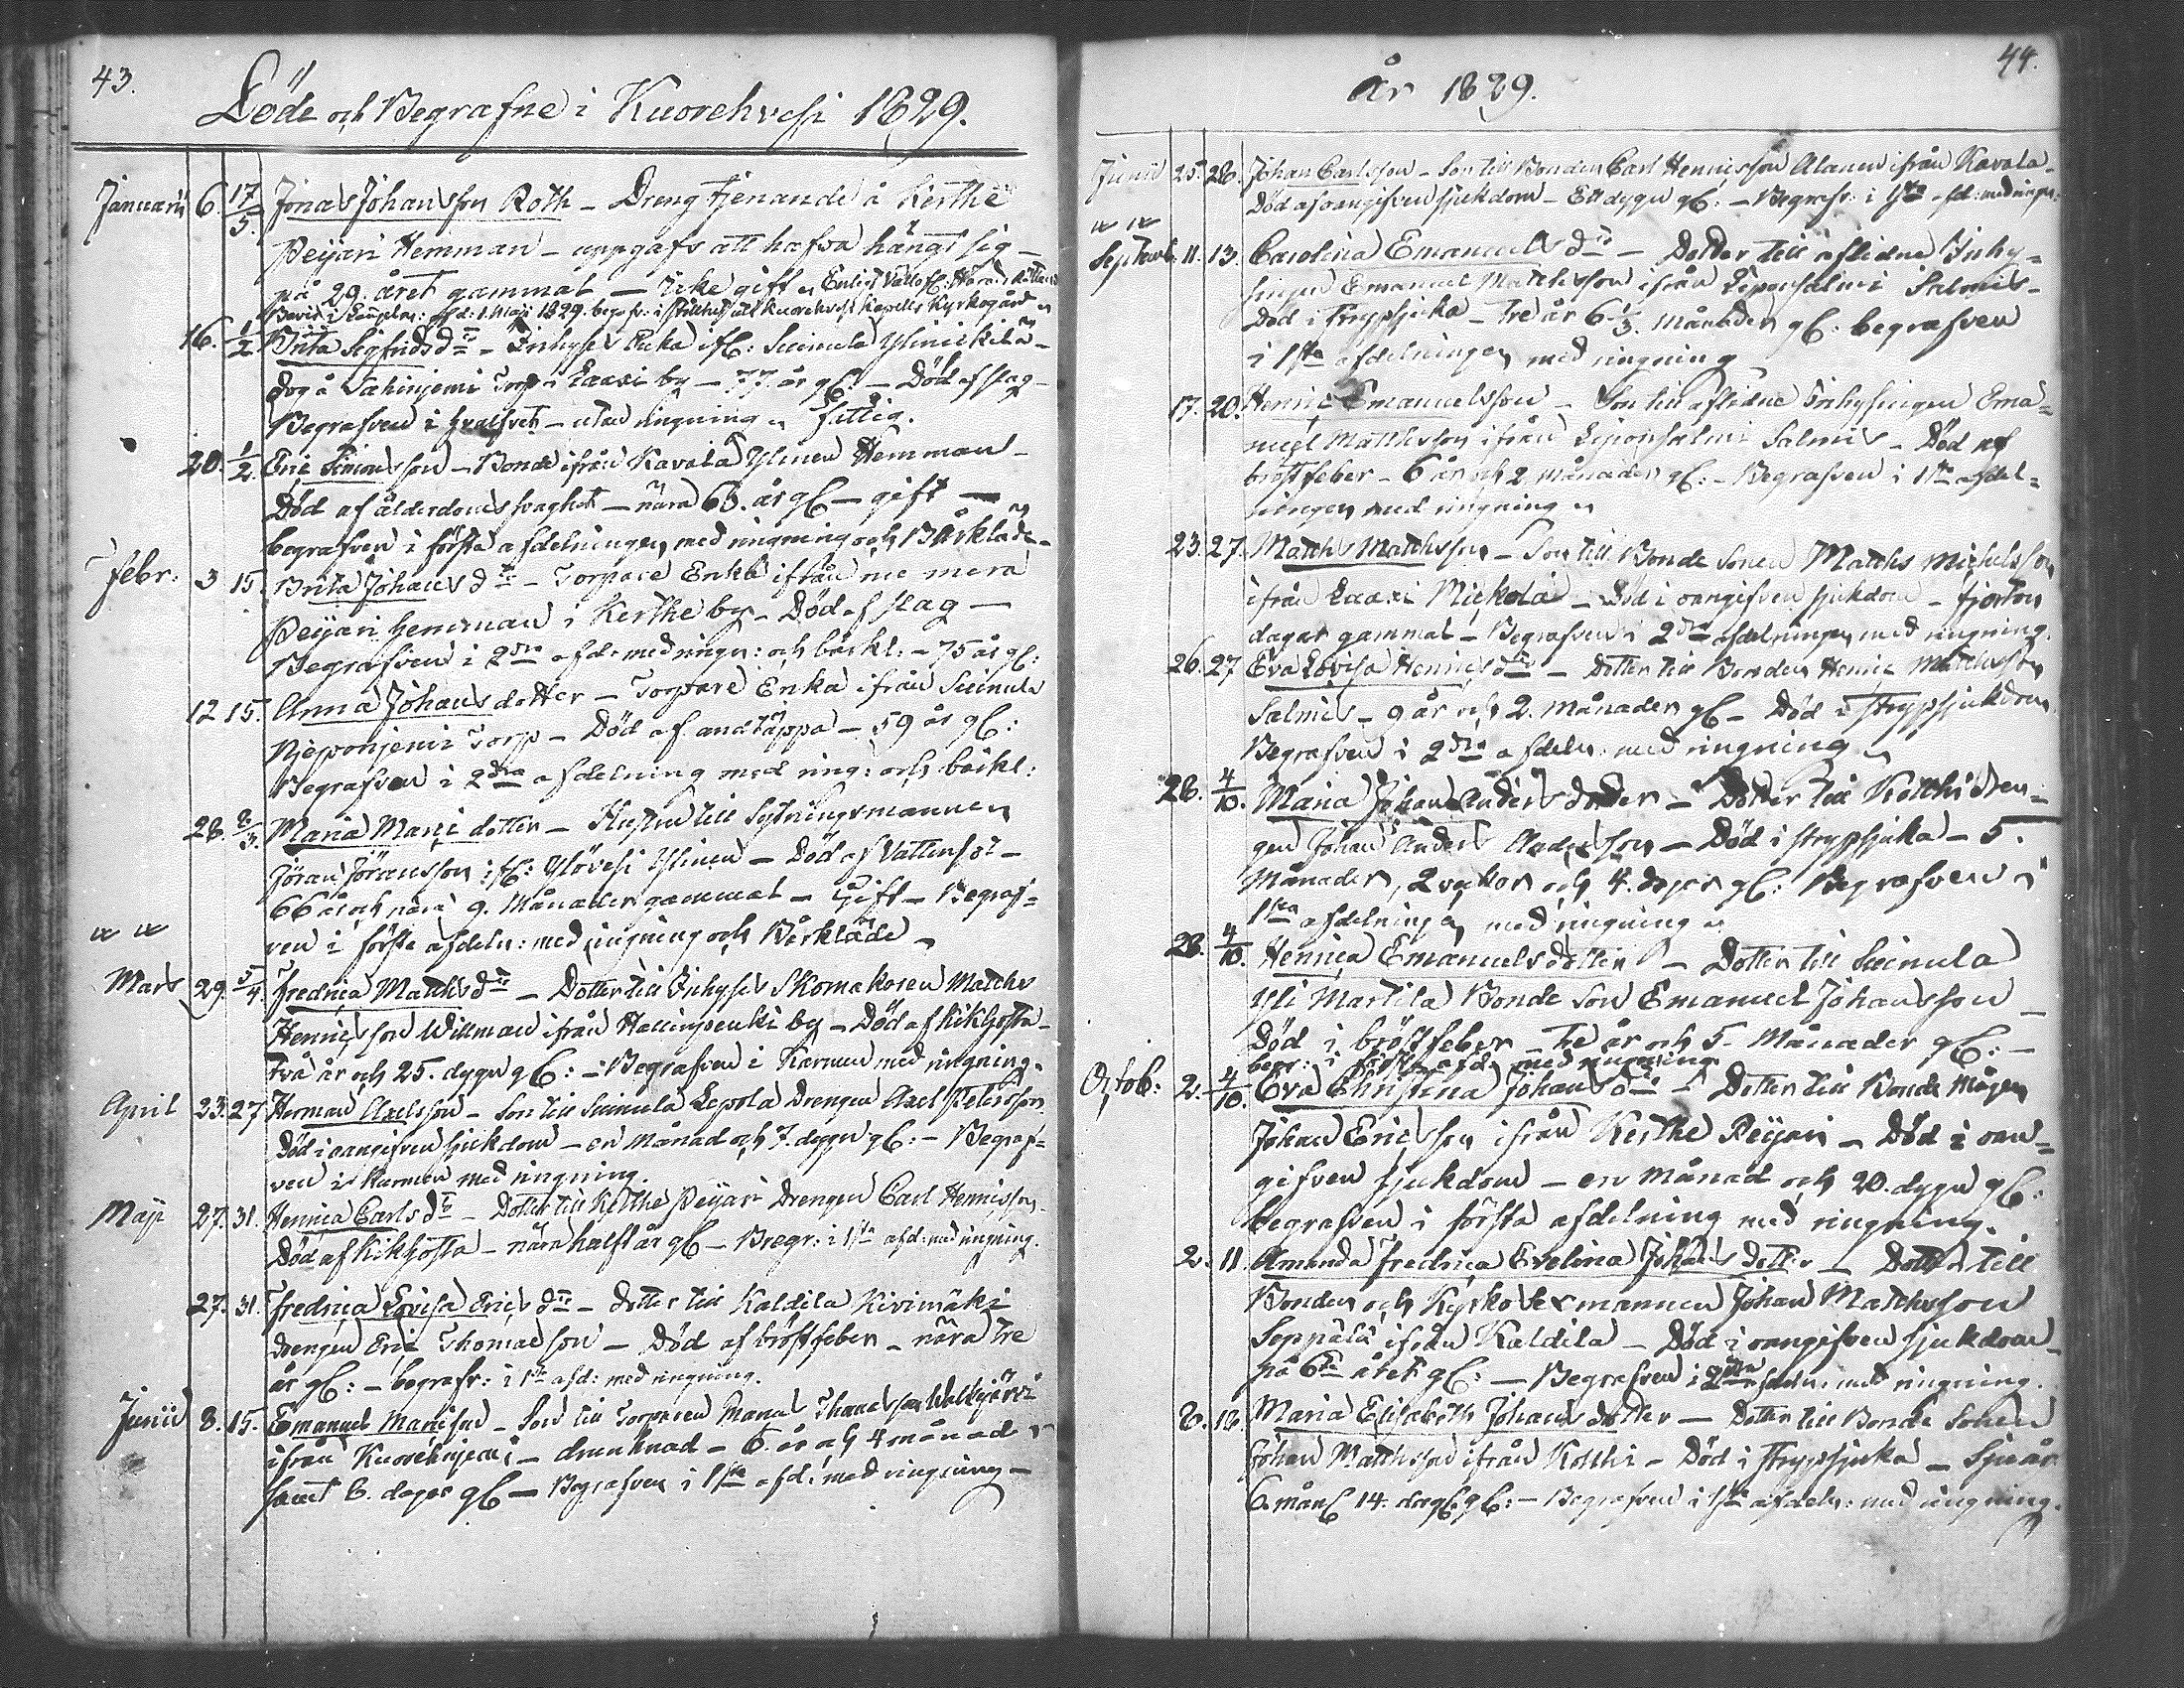 43.
Döde och Begrafne i Kuorehvesi 1829.
Januarii 6. 17/5. Jonas Johansson Roth – Dreng tjenande å Kerthe
Peijari Hemman – uppgafs att hafva hängt sig –
på 29. året gammal – icke gift Enligt
1829. begr. i Kuorehvesi Kapells Kyrkogård
16. 1/2 Brita Sigfrids dr – Inhyses Enka ifr: Suinula Ylinickilä –
dog å Sahinjemi Torp i Laaxi by – 77. år gl. – Död af slag –
Begrafven i – utan ringning fattig.
20. 1/2. Eric Simonsson – Bonde ifrån Kavala Ylinen Hemman –
Död af ålderdoms svaghet – nära 63. år gl – gift –
begrafven i första afdelningen med ringning och Bårkläde –
Febr: 3 15. Brita Johans dr – Torpare Enka ifrån me mera
Peijari hemman i Kerthe by – Död af slag –
Begrafven i 2dra afd: med ringn: och bårkl: – 75 år gl:
12 15. Anna Johans dotter – Torpare Enka ifrån Suinula
Niemonjemi Torp – Död af andtäppa – 59 år gl:
Begrafven i 2dra afdelning med ring: och bårkl:
28. 8/3. Maria Mani dotter – Hustru till Sytningsmannen
Jöran Jöransson ifr: Ylövesi Ylinen – Död af Vattensot –
66 år och nära 9. Månader gammal – Gift – Begraf=
ven i förste afdeln: med ringning och Bårkläde –
Mars 29. 5/4 Fredrica Matths dr – Dotter till Inhyses Skomakaren Matths
Henricsson Willman ifrån Hallinpenki by – Död af kikhosta –
två år och 25. dygn gl: – Begrafven i Karmen med ringning.
April 23. 27 Herman Axelsson – Son till Suinula Lepola Drengen Axel Petersson
Död i oangifven sjukdom – en månad och 7. dygn gl: – Begraf=
ven i Karmen med ringning.
Maji 27. 31. Henrica Carls dr – Dotter till Kerthe Peijari Drengen Carl Henricsson
Död af kikhosta – nära halft år gl – Begr: i 1sta afd: med ringning.
27. 31. Fredrica Lovisa Erics dr – dotter till Kaldila Kivimäki
drengen Eric Thomasson – Död af bröstfeber – nära tre
år gl: – begrafv: i 1sta afd: med ringning.
Junii 8. 15. Emanuel Manisson – Son till Torparen Manas Thomasson Walkijärvi
ifrån Kuorehnjemi – drunknad – 6. år och 4 månader
samt 6. dagar gl – Begrafven i 1sta afd: med ringning –
44.
År 1829.
Junii 25. 28. Johan Carlsson – Son till Bonden Carl Henricsson Alanen ifrån Kavala –
Död af oangifven sjukdom – Ett dygn gl: – Begrafv: i 1sta afd: med ringn:
Septemb. 11. 13. Carolina Emanuels dr – Dotter till aflidne Inhy=
singen Emanuel Matthsson ifrån Leponsalmi Salmis –
Död i strypsjuka – tre år 6 1/3. Månader gl: begrafven
i 1sta afdelningen med ringning
17. 20. Henric Emanuelsson – Son till aflidne Inhysingen Ema=
nuel Matthsson ifrån Leponsalmi Salmis – Död af
bröstfeber – 6 år och 2 månader gl: – Begrafven i 1sta afdel=
ningen med ringning
23. 27. Matths Matthsson – Son till Bonde Sonen Matths Michelsson
ifrån Laaxi Mickola – Död i oangifven sjukdom – fjorton
dagar gammal – Begrafven i 2dra afdelningen med ringning.
26. 27 Eva Lovisa Henrics dr – Dotter till Bonden Henric Matthsson
Salmis – 9 år och 2. Månader gl – Död i strypsjukdom
Begrafven i 2dra afdeln: med ringning
28. 4/10. Maria Johan Anders dotter – Dotter till Kotthi Dren=
gen Johan Anders Andersson – Död i strypsjuka – 5.
Månader, 2 veckor och 4. dagar gl: Begrafven i
1sta afdelningen med ringning
28. 4/10. Henrica Emanuels dotter – Dotter till Suinula
Yli Martila Bonde Son Emanuel Johansson –
Död i bröstfeber – tre år och 5. Månader gl: –
begr: i första afd. med ringning
Octob: 2. 4/10. Eva Christina Johans dr – Dotter till Bonde Mågen
Johan Ericsson ifrån Kerthe Peijari – Död i oan=
gifven sjukdom – en månad och 20. dygn gl:
begrafven i första afdelning med ringning.
2. 11. Amanda Fredrica Evelina Johans dotter – Dotter till
Bonden och Kyrko Värmannen Johan Matthsson
Seppälä ifrån Kaldila – Död i oangifven sjukdom –
på 6te året gl: – Begrafven i 2dra afdeln: med ringning.
8. 18. Maria Elisabeth Johans dotter – Dotter till Bonde Sonen
Johan Matthsson ifrån Kotthi – Död i strypsjuka – Sju år
6. mån 14. dag gl: – Begrafven i 1sta afdeln: med ringning.